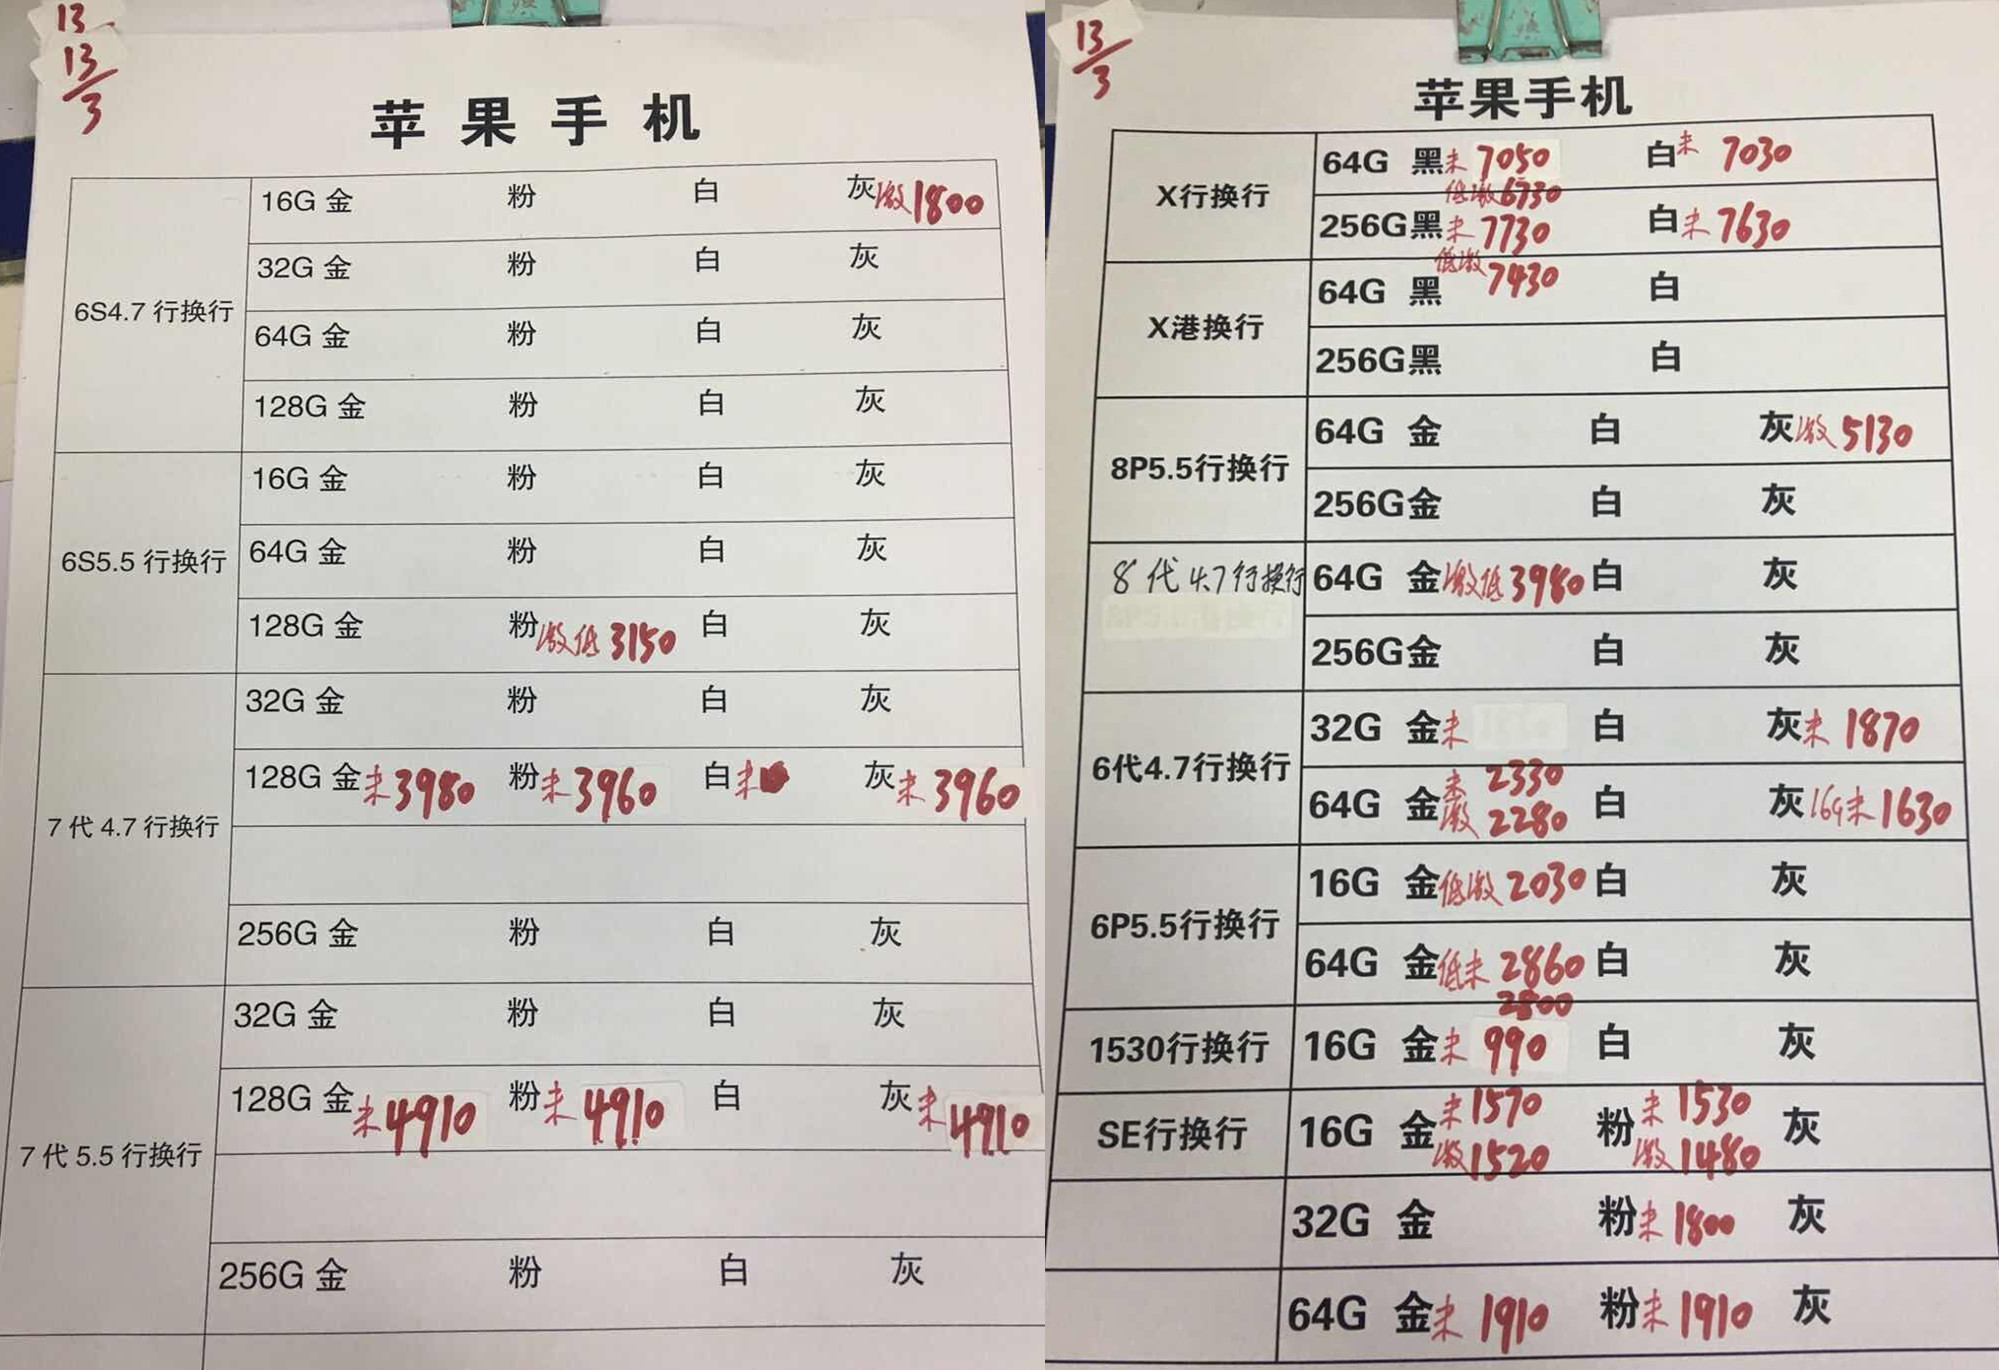 13
13
3
苹果手机
6S4.7 行换行
16G 金 粉 白 灰 激 1800
32G 金 粉 白 灰
64G 金 粉 白 灰
128G 金 粉 白 灰
6S5.5 行换行
16G 金 粉 白 灰
64G 金 粉 白 灰
128G 金 粉 激低 3150 白 灰
7 代 4.7 行换行
32G 金 粉 白 灰
128G 金 未 3980 粉 未 3960 白 未 灰 未 3960
256G 金 粉 白 灰
7 代 5.5 行换行
32G 金 粉 白 灰
128G 金 未 4910 粉 未 4910 白 灰 未 4910
256G 金 粉 白 灰
13
3
苹果手机
X行换行
64G 黑 未 7050 白 未 7030
低激 6730
256G 黑 未 7730 白 未 7630
低激 7430
X港换行
64G 黑 白
256G 黑 白
8P5.5行换行
64G 金 白 灰 激 5130
256G 金 白 灰
8代 4.7行换行
64G 金 激低 3980 白 灰
256G 金 白 灰
6代4.7行换行
32G 金 未 白 灰 未 1870
64G 金 未 2330 白 灰 16G 未 1630
激 2280
6P5.5行换行
16G 金 低激 2030 白 灰
64G 金 低未 2860 白 灰
2800
1530行换行
16G 金 未 990 白 灰
SE行换行
16G 金 未 1570 粉 未 1530 灰
激 1520 激 1480
32G 金 粉 未 1800 灰
64G 金 未 1910 粉 未 1910 灰